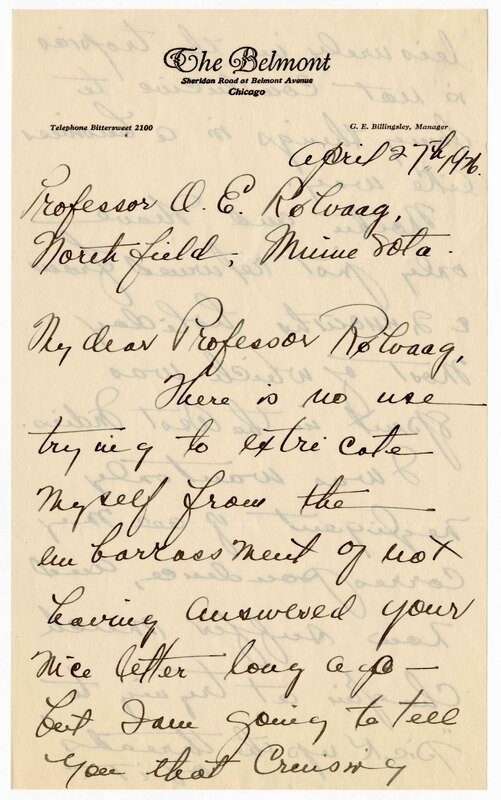 The Belmont
Sheridan Road at Belmont Avenue
Chicago
Telephone Bittersweet 2100
G. E. Billingsley, Manager
April 27th 1926.
Professor O. E. Rölvaag,
Northfield, Minnesota.
My dear Professor Rölvaag,
There is no use
trying to extricate
myself from the
embarrassment of not
having answered your
nice letter long ago —
but I am going to tell
you that Cruising